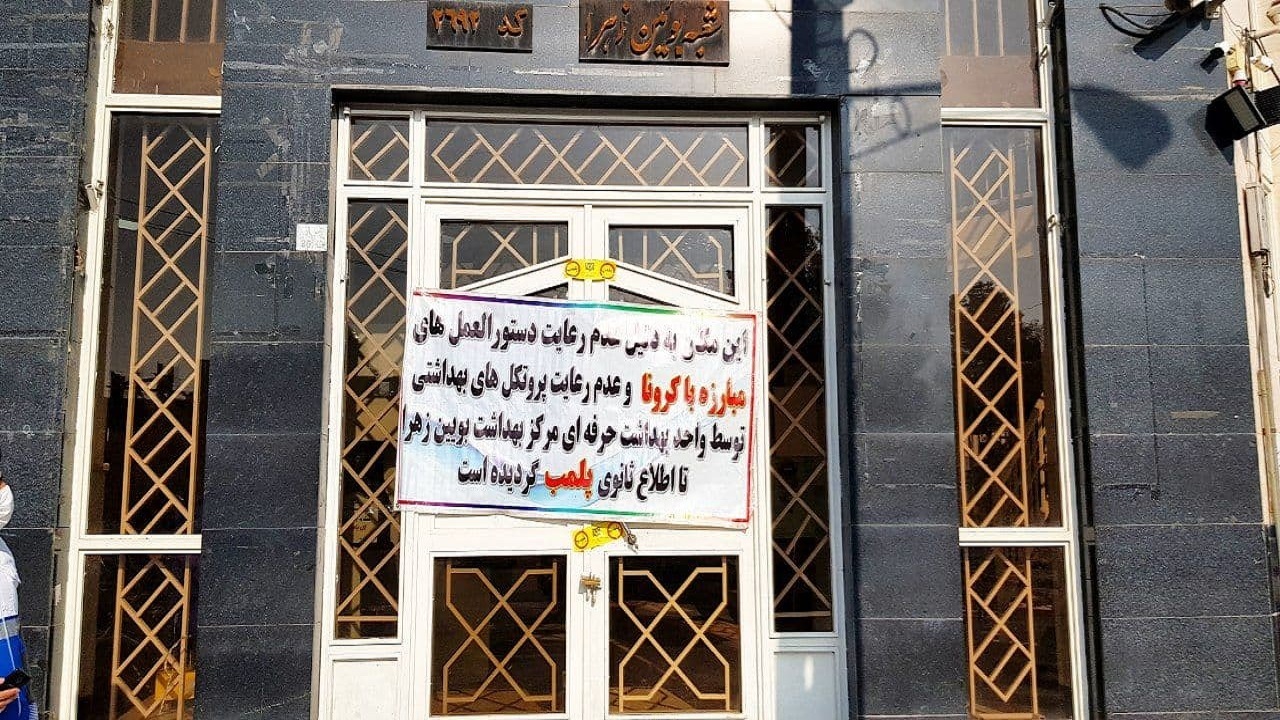 کد ۲۶۹۲
شعبه بوئین زهرا
این مکان به دلیل عدم رعایت دستورالعمل های
مبارزه با کرونا و عدم رعایت پروتکل های بهداشتی
توسط واحد بهداشت حرفه ای مرکز بهداشت بویین زهرا
تا اطلاع ثانوی پلمب گردیده است